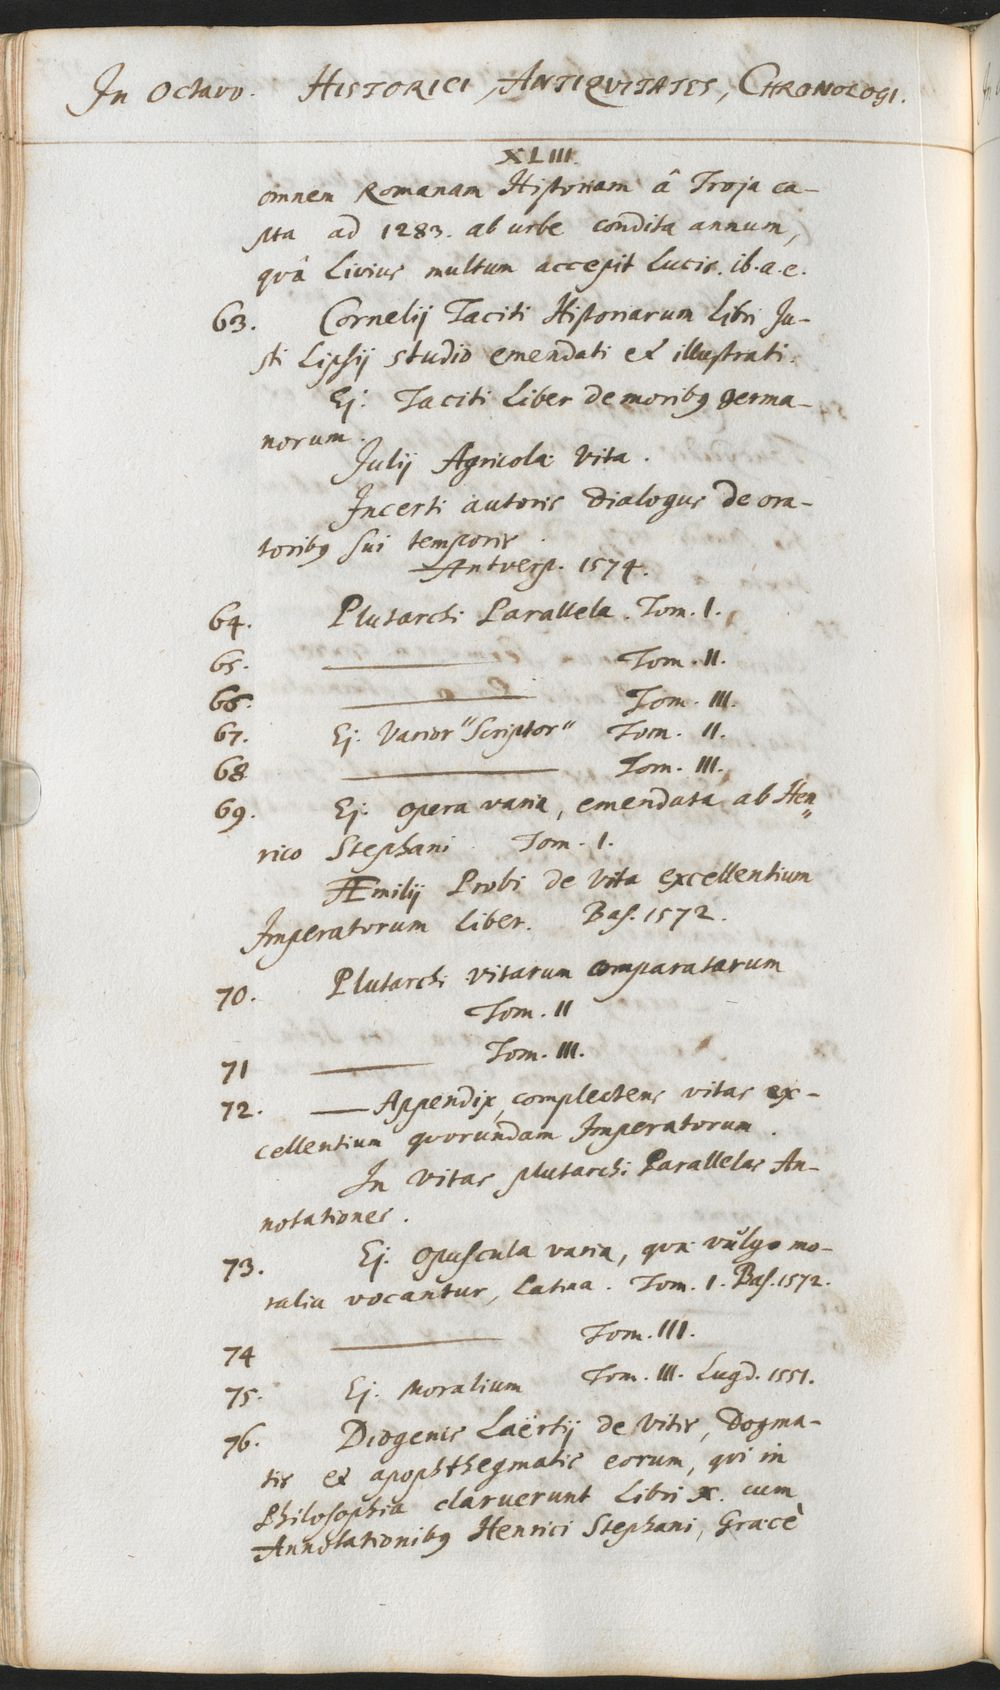 In Octavo. HISTORICI, ANTIQVITATES, CHRONOLOGI.
XLIII.
omnem Romanam Historiam â Troja ca-
pta ad 1283. ab urbe condita annum,
quâ Livius multum accepit Lucis. ib. a. e.
63. Cornelij Taciti Historiarum Libri Ju-
sti Lipsij studio emendati et illustrati.
Ej. Taciti Liber de moribꝯ germa-
norum.
Julij Agricolæ Vita.
Incerti autoris Dialogus De ora-
toribꝯ sui temporis.
Antverp. 1574.
64. Plutarchi Parallela. Tom. I.
65. ——— Tom. II.
66. ——— Tom. III.
67. Ej. Varior" Scriptor" Tom. II.
68 ——— Tom. III.
69. Ej. opera varia, emendata ab Hen"
rico Stephani Tom. I.
Æmilij Probi de Vita excellentium
Imperatorum Liber. Bas. 1572.
70. Plutarchi Vitarum comparatarum
Tom. II
71 ——— Tom. III.
72. —— Appendix, complectens vitas ex-
cellentium quorundam Imperatorum.
In Vitas plutarchi Parallelas An-
notationes.
73. Ej. Opuscula varia, quæ vulgo mo-
ralia vocantur, Latina. Tom. I. Bas. 1572.
74 ——— Tom. III.
75. Ej. Moralium Tom. III. Lugd. 1551.
76. Diogenis Laërtij de Vitis, Dogma-
tis et apophthegmatis eorum, qui in
Philosophia claruerunt Libri X. cum
Annotationibꝯ Henrici Stephani, Græcè